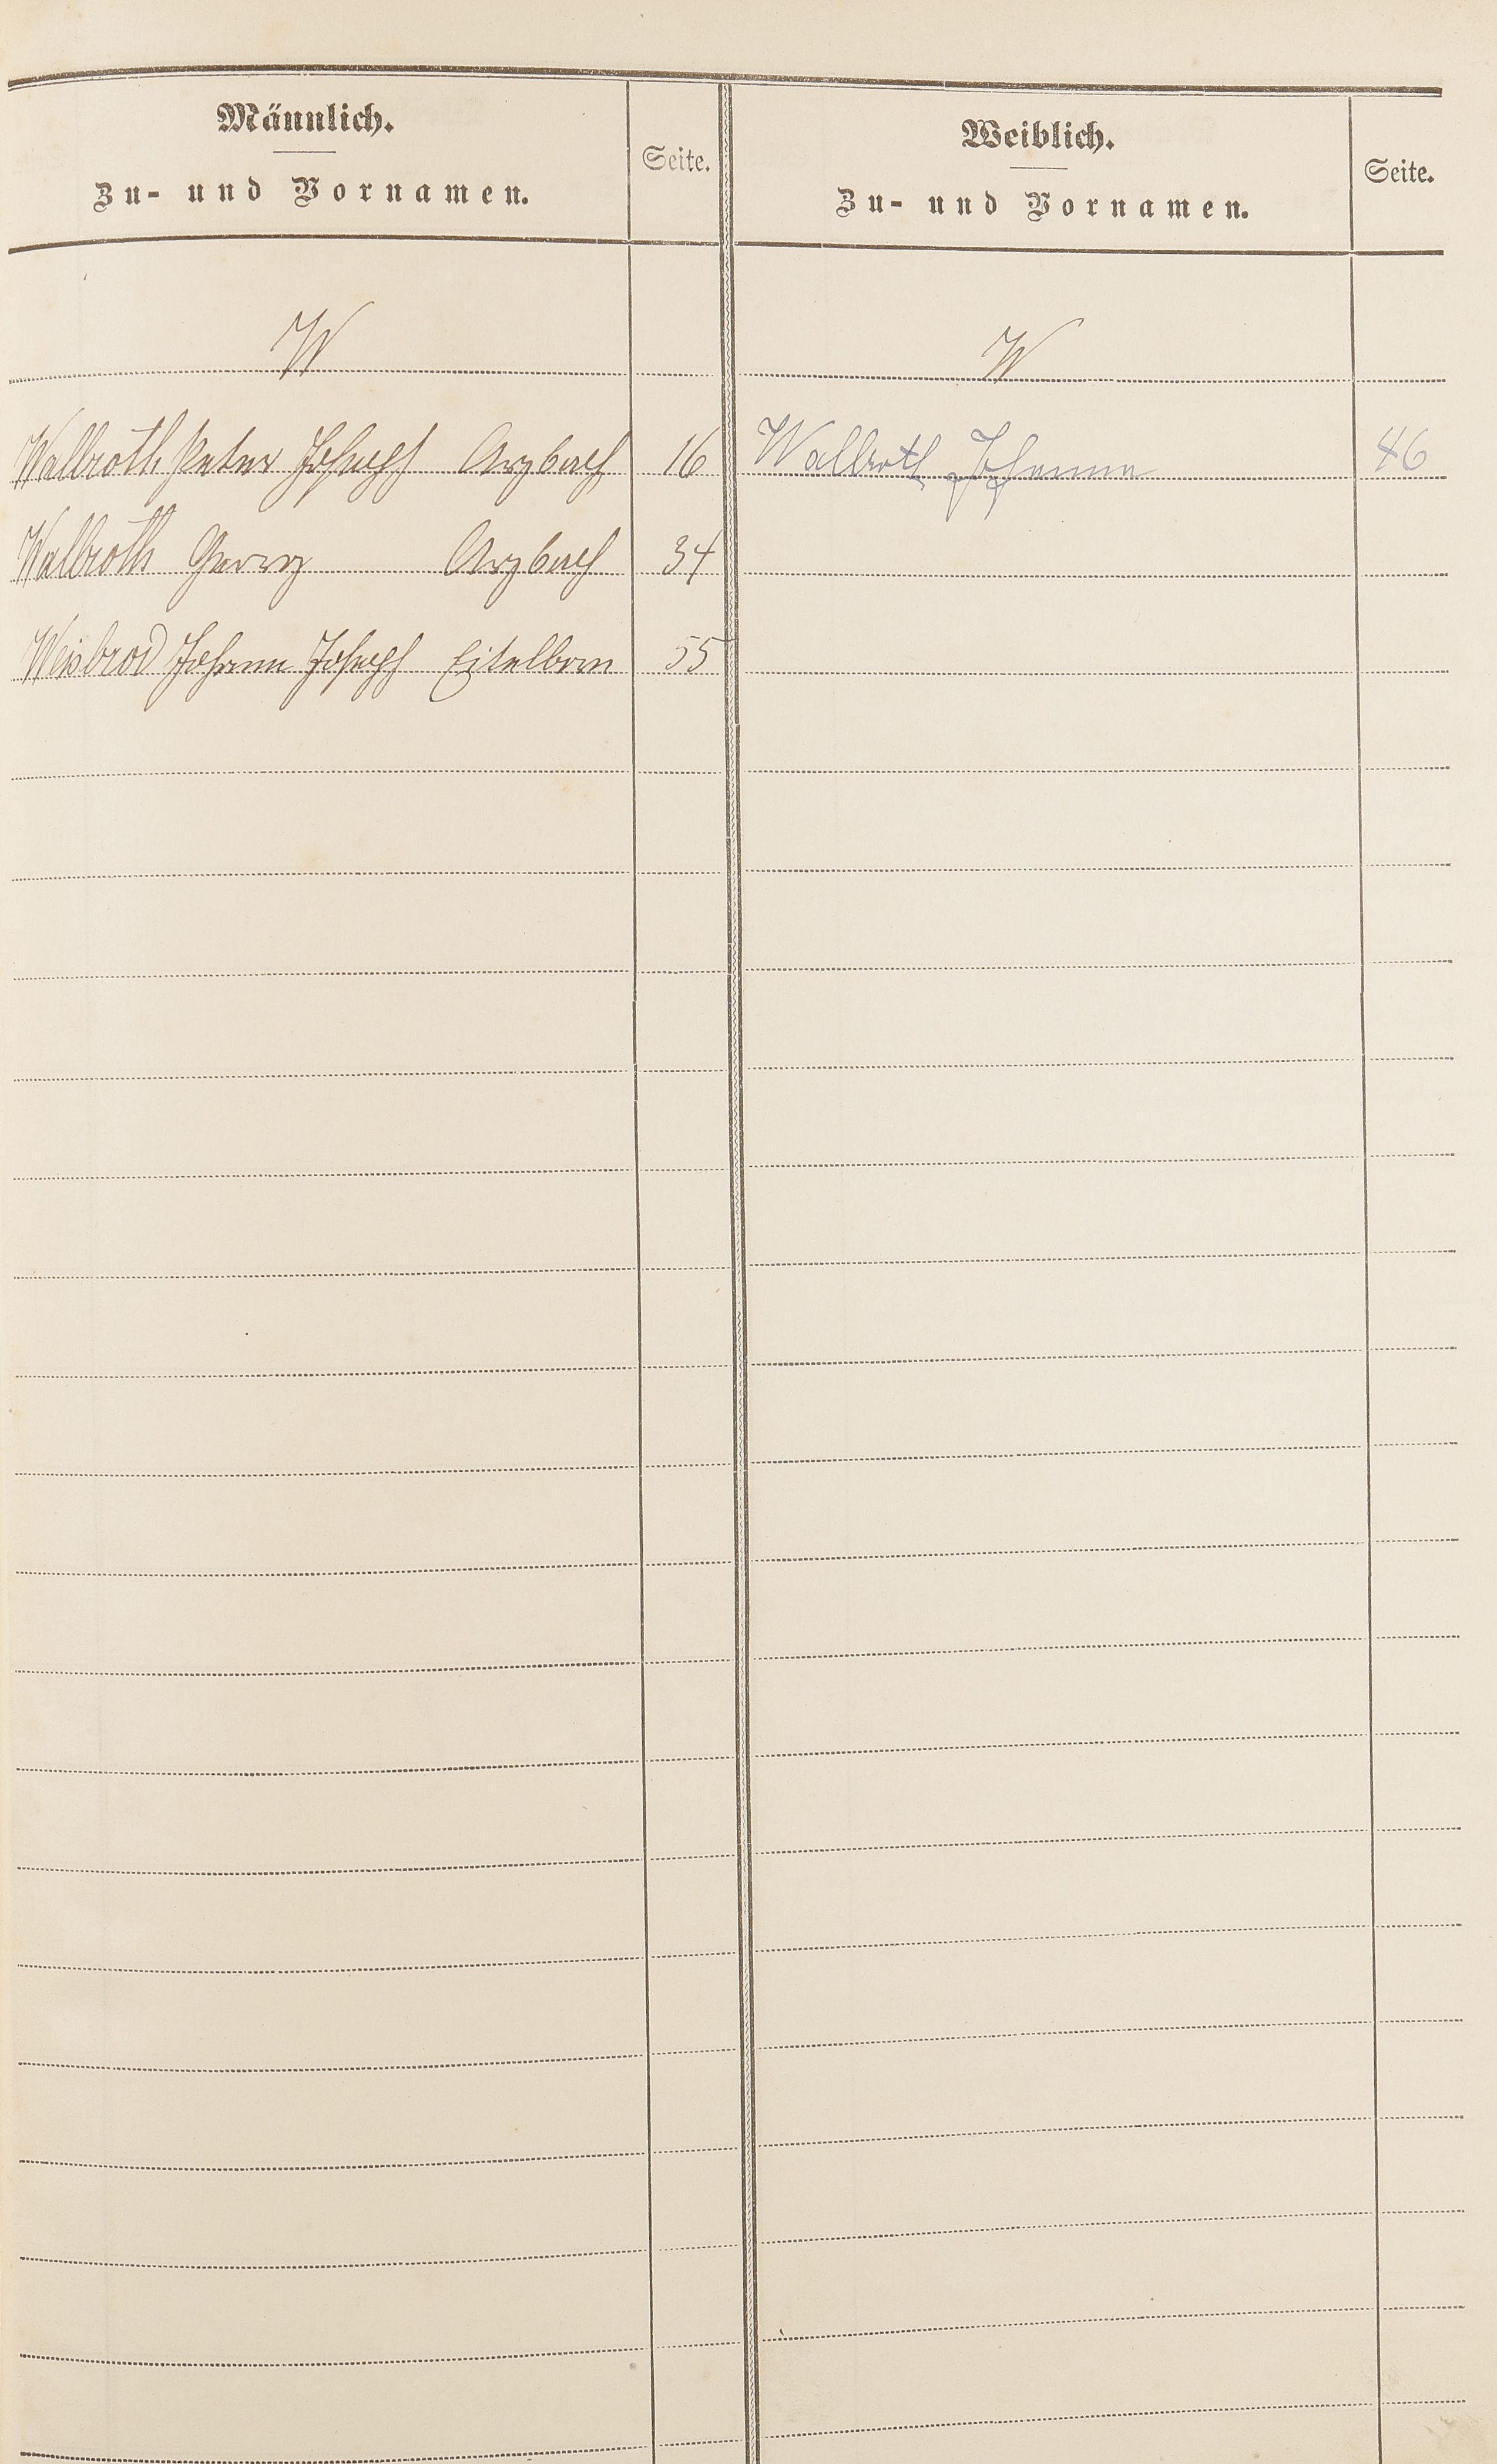 Männlich.
Zu- und Vornamen.
Seite.
Weiblich.
Zu- und Vornamen.
Seite.
W
W
Walbroth Peter Joseph Arzbach 16
Wallroth Johanna 46
Walbroth Georg Arzbach 34
Weisbrod Johann Joseph Eitelborn 55